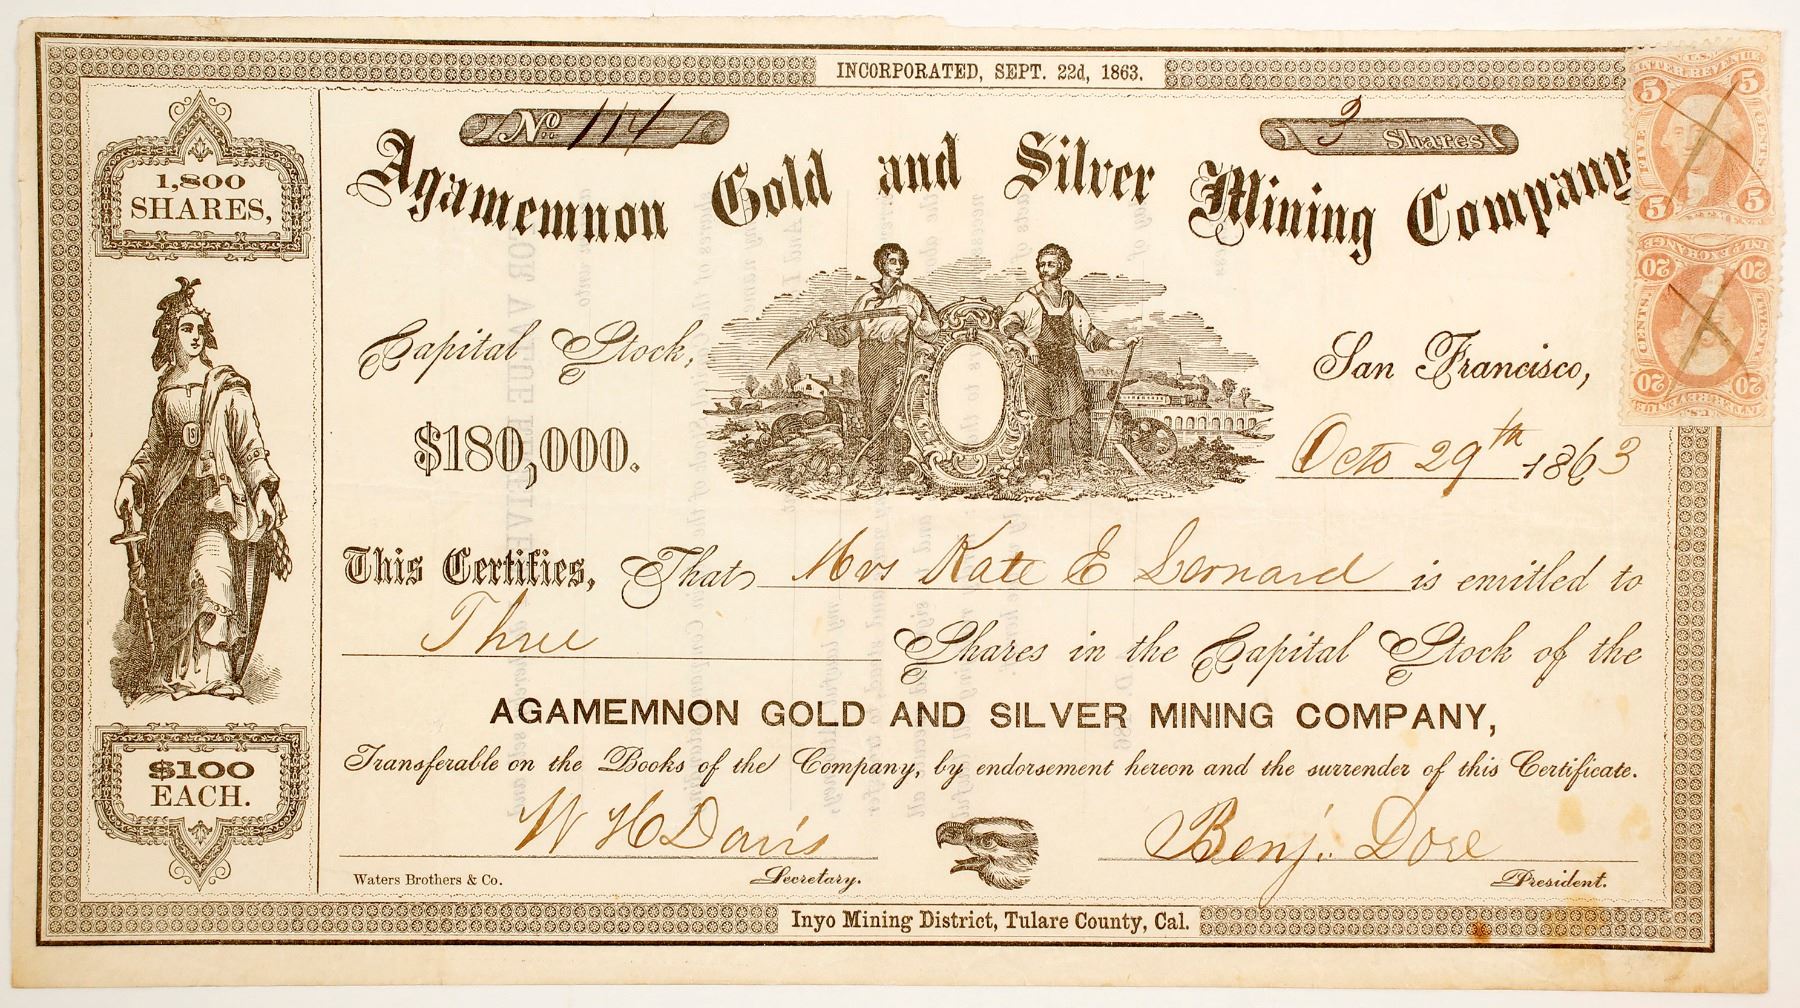 INCORPORATED, SEPT. 22d, 1863.
No. 114
3 Shares
Agamemnon Gold and Silver Mining Company
1,800
SHARES,
Capital Stock,
$180,000.
San Francisco,
Octo 29th 1863
This Certifies, That Mrs Kate E Leonard is enritled to
Three Shares in the Capital Stock of the
AGAMEMNON GOLD AND SILVER MINING COMPANY,
Transferable on the Books of the Company, by endorsement hereon and the surrender of this Certificate.
$100
EACH.
W H Davis
Benj. Dore
Waters Brothers & Co.
Secretary.
President.
Inyo Mining District, Tulare County, Cal.
U.S.
INTER. REVENUE
5 5
FIVE CENTS
5 5
INL. EXCHANGE
20 20
TWENTY CENTS
20 20
U.S.
INTER. REVENUE